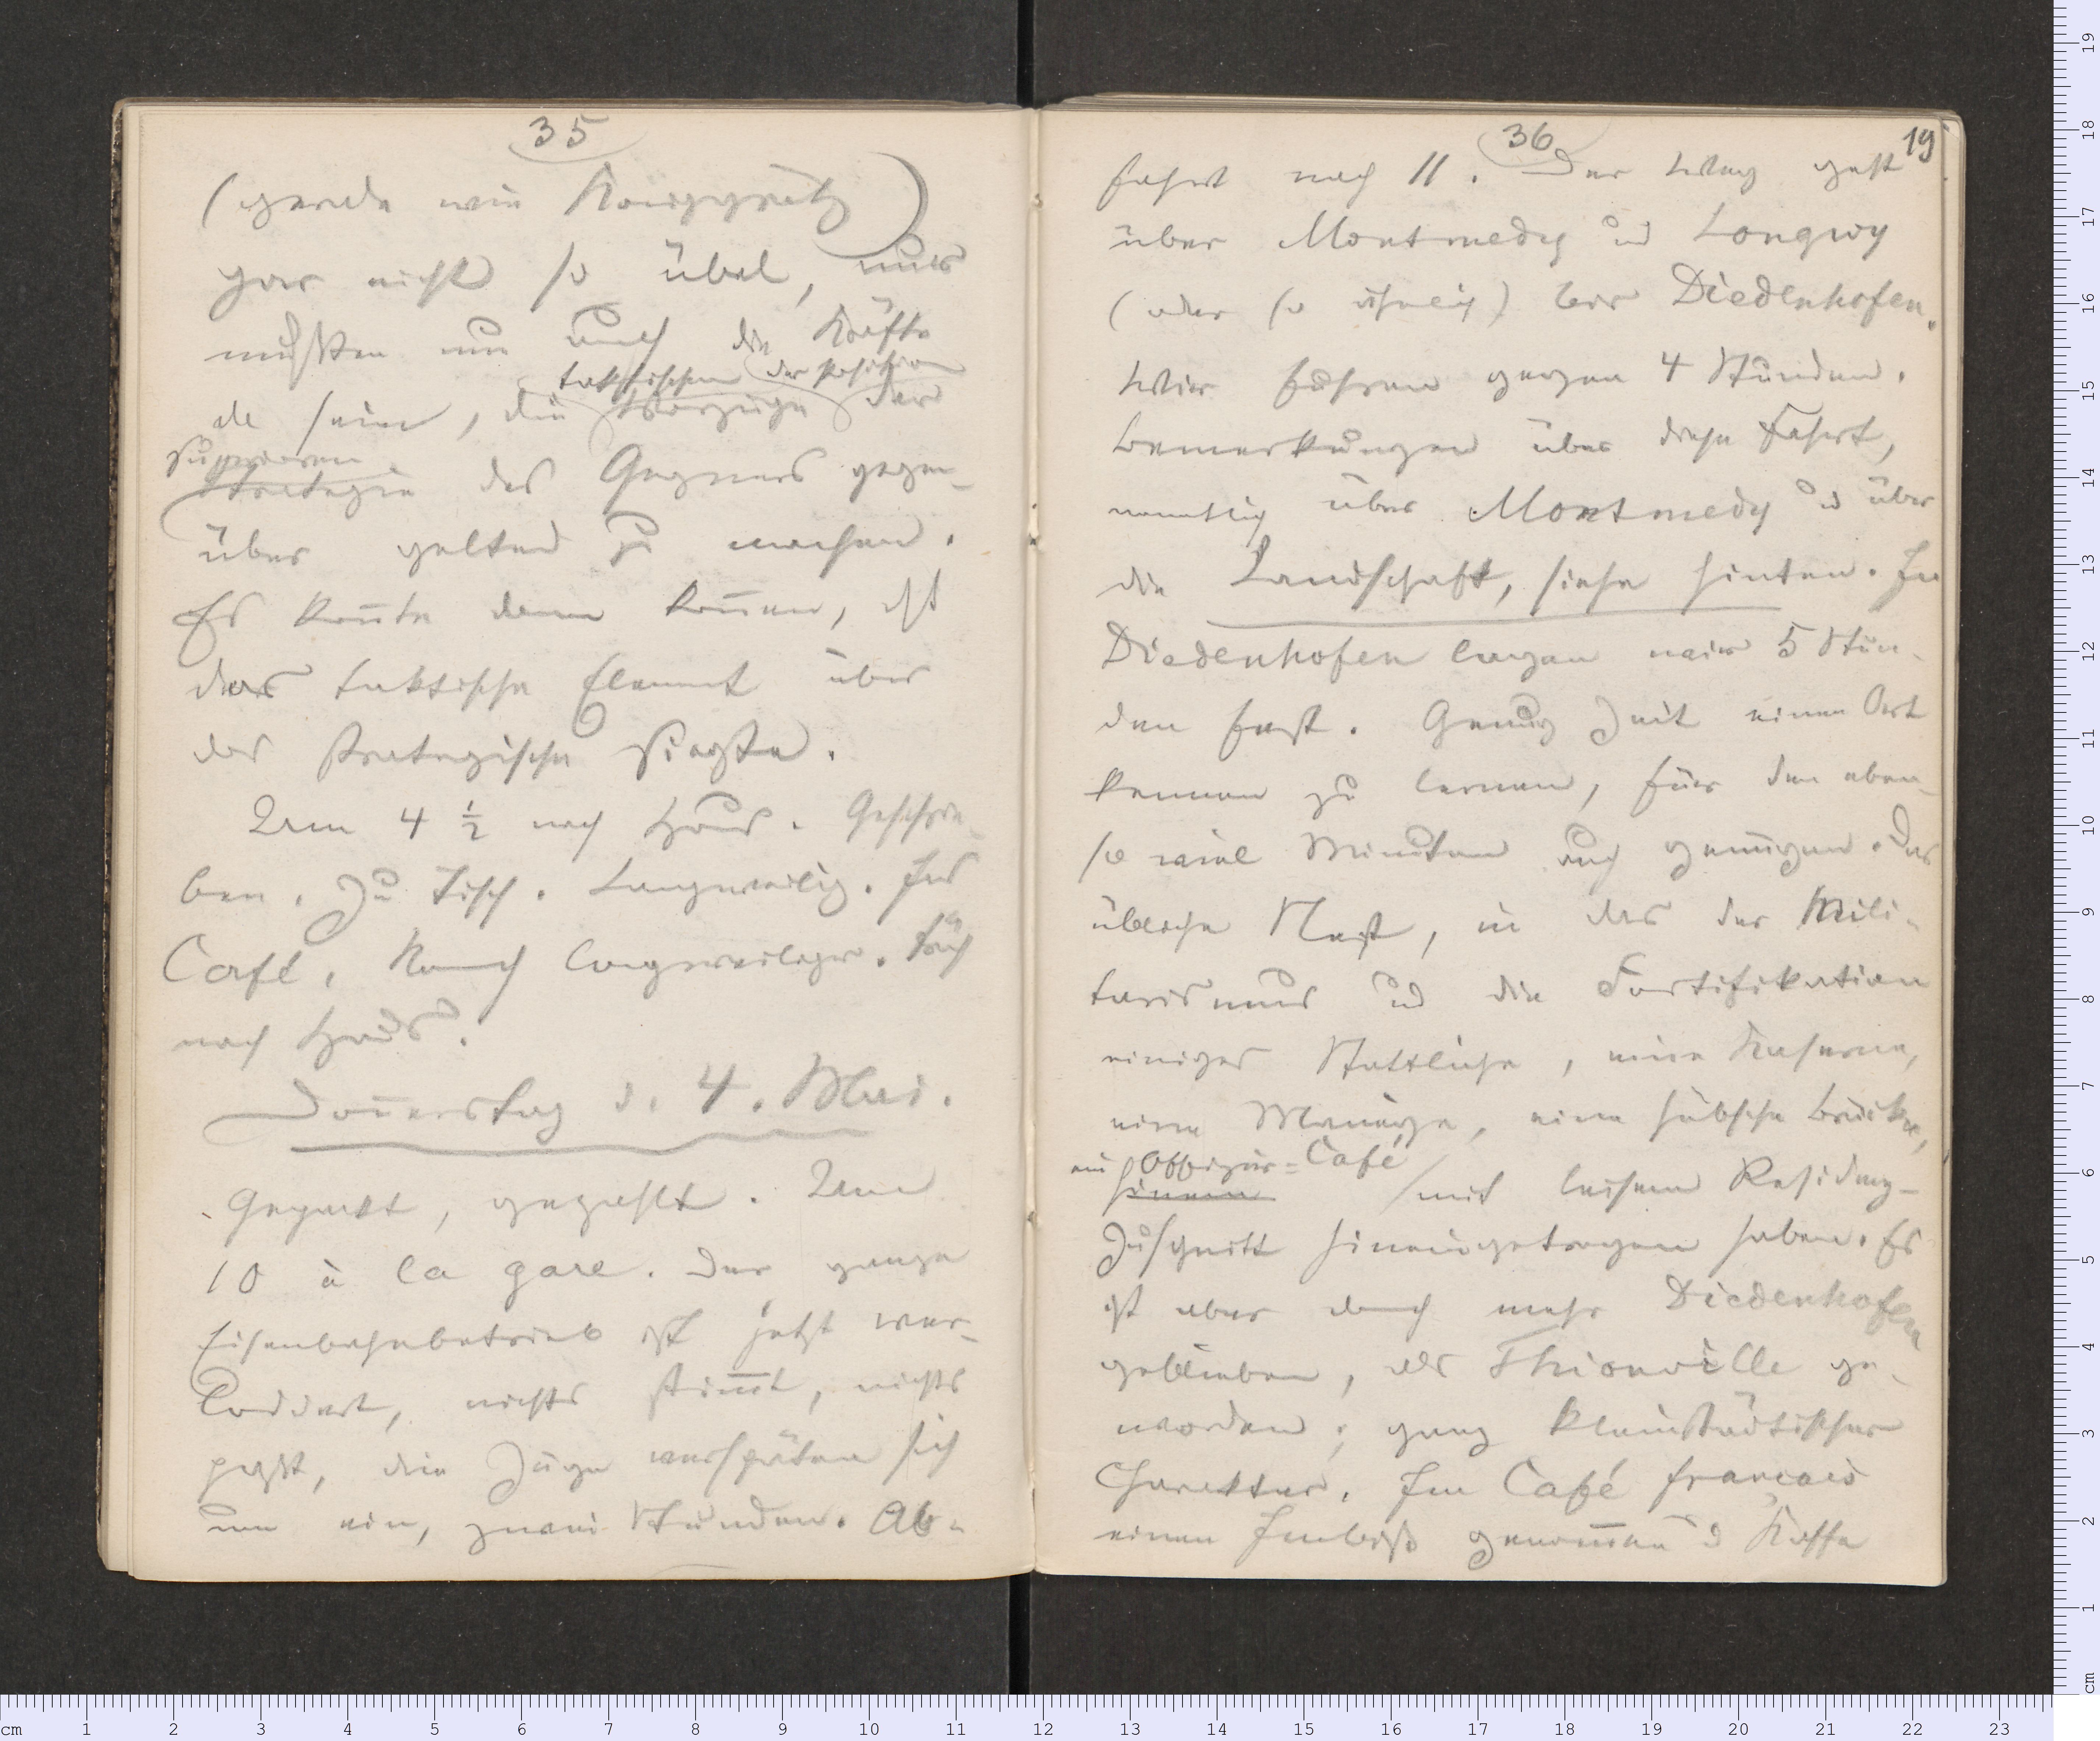 35
(gerade wie Königgrätz)
gar nicht so übel, nur
mußten nun auch die Kräfte
da sein, die taktischen Vorzüge der Position der
superioren
Strategie des Gegners gegen-
über geltend zu machen.
Es konn̄te dann kom̄en, daß
das taktische Element über
das strategische siegte.
Um 4 ½ nach Haus. Geschrie-
ben. Zu Tisch. Langweilig. Ins
Café. Noch langweiliger. Früh
nach Haus.
Don̄erstag d. 4. Mai.
Gepackt, gezahlt. Um
10 à la gare. Der ganze
Eisenbahnbetrieb ist jetzt ver-
loddert, nichts stim̄t, nichts
paßt, die Züge verspäten sich
um ein, zwei Stunden. Ab-
36
19
fahrt nach 11. Der Weg geht
über Montmedy u Longwy
(oder so ähnlich) bis Diedenhofen.
Wir fuhren gegen 4 Stunden.
Bemerkungen über diese Fahrt,
namtlich über Montmedy u über
die Landschaft, siehe hinten. In
Diedenhofen lagen wir 5 Stun-
den fest. Genug Zeit einen Ort
kennen zu lernen, für den eben-
so viel Minuten auch genügen. Das
übliche Nest, in das der Mili-
tarismus u die Fortifikation
einiges Stattliche, eine Kaserne,
eine Manège, eine hübsche Brücke,
ein Offizier=Café
hinein mit leisem Residenz-
Zuschnitt hineingetragen haben. Es
ist aber doch mehr Diedenhofen
geblieben, als Thionville ge-
worden; ganz kleinstädtischer
Charakter. Im Café francais
einen Imbiß genom̄en u Kaffe